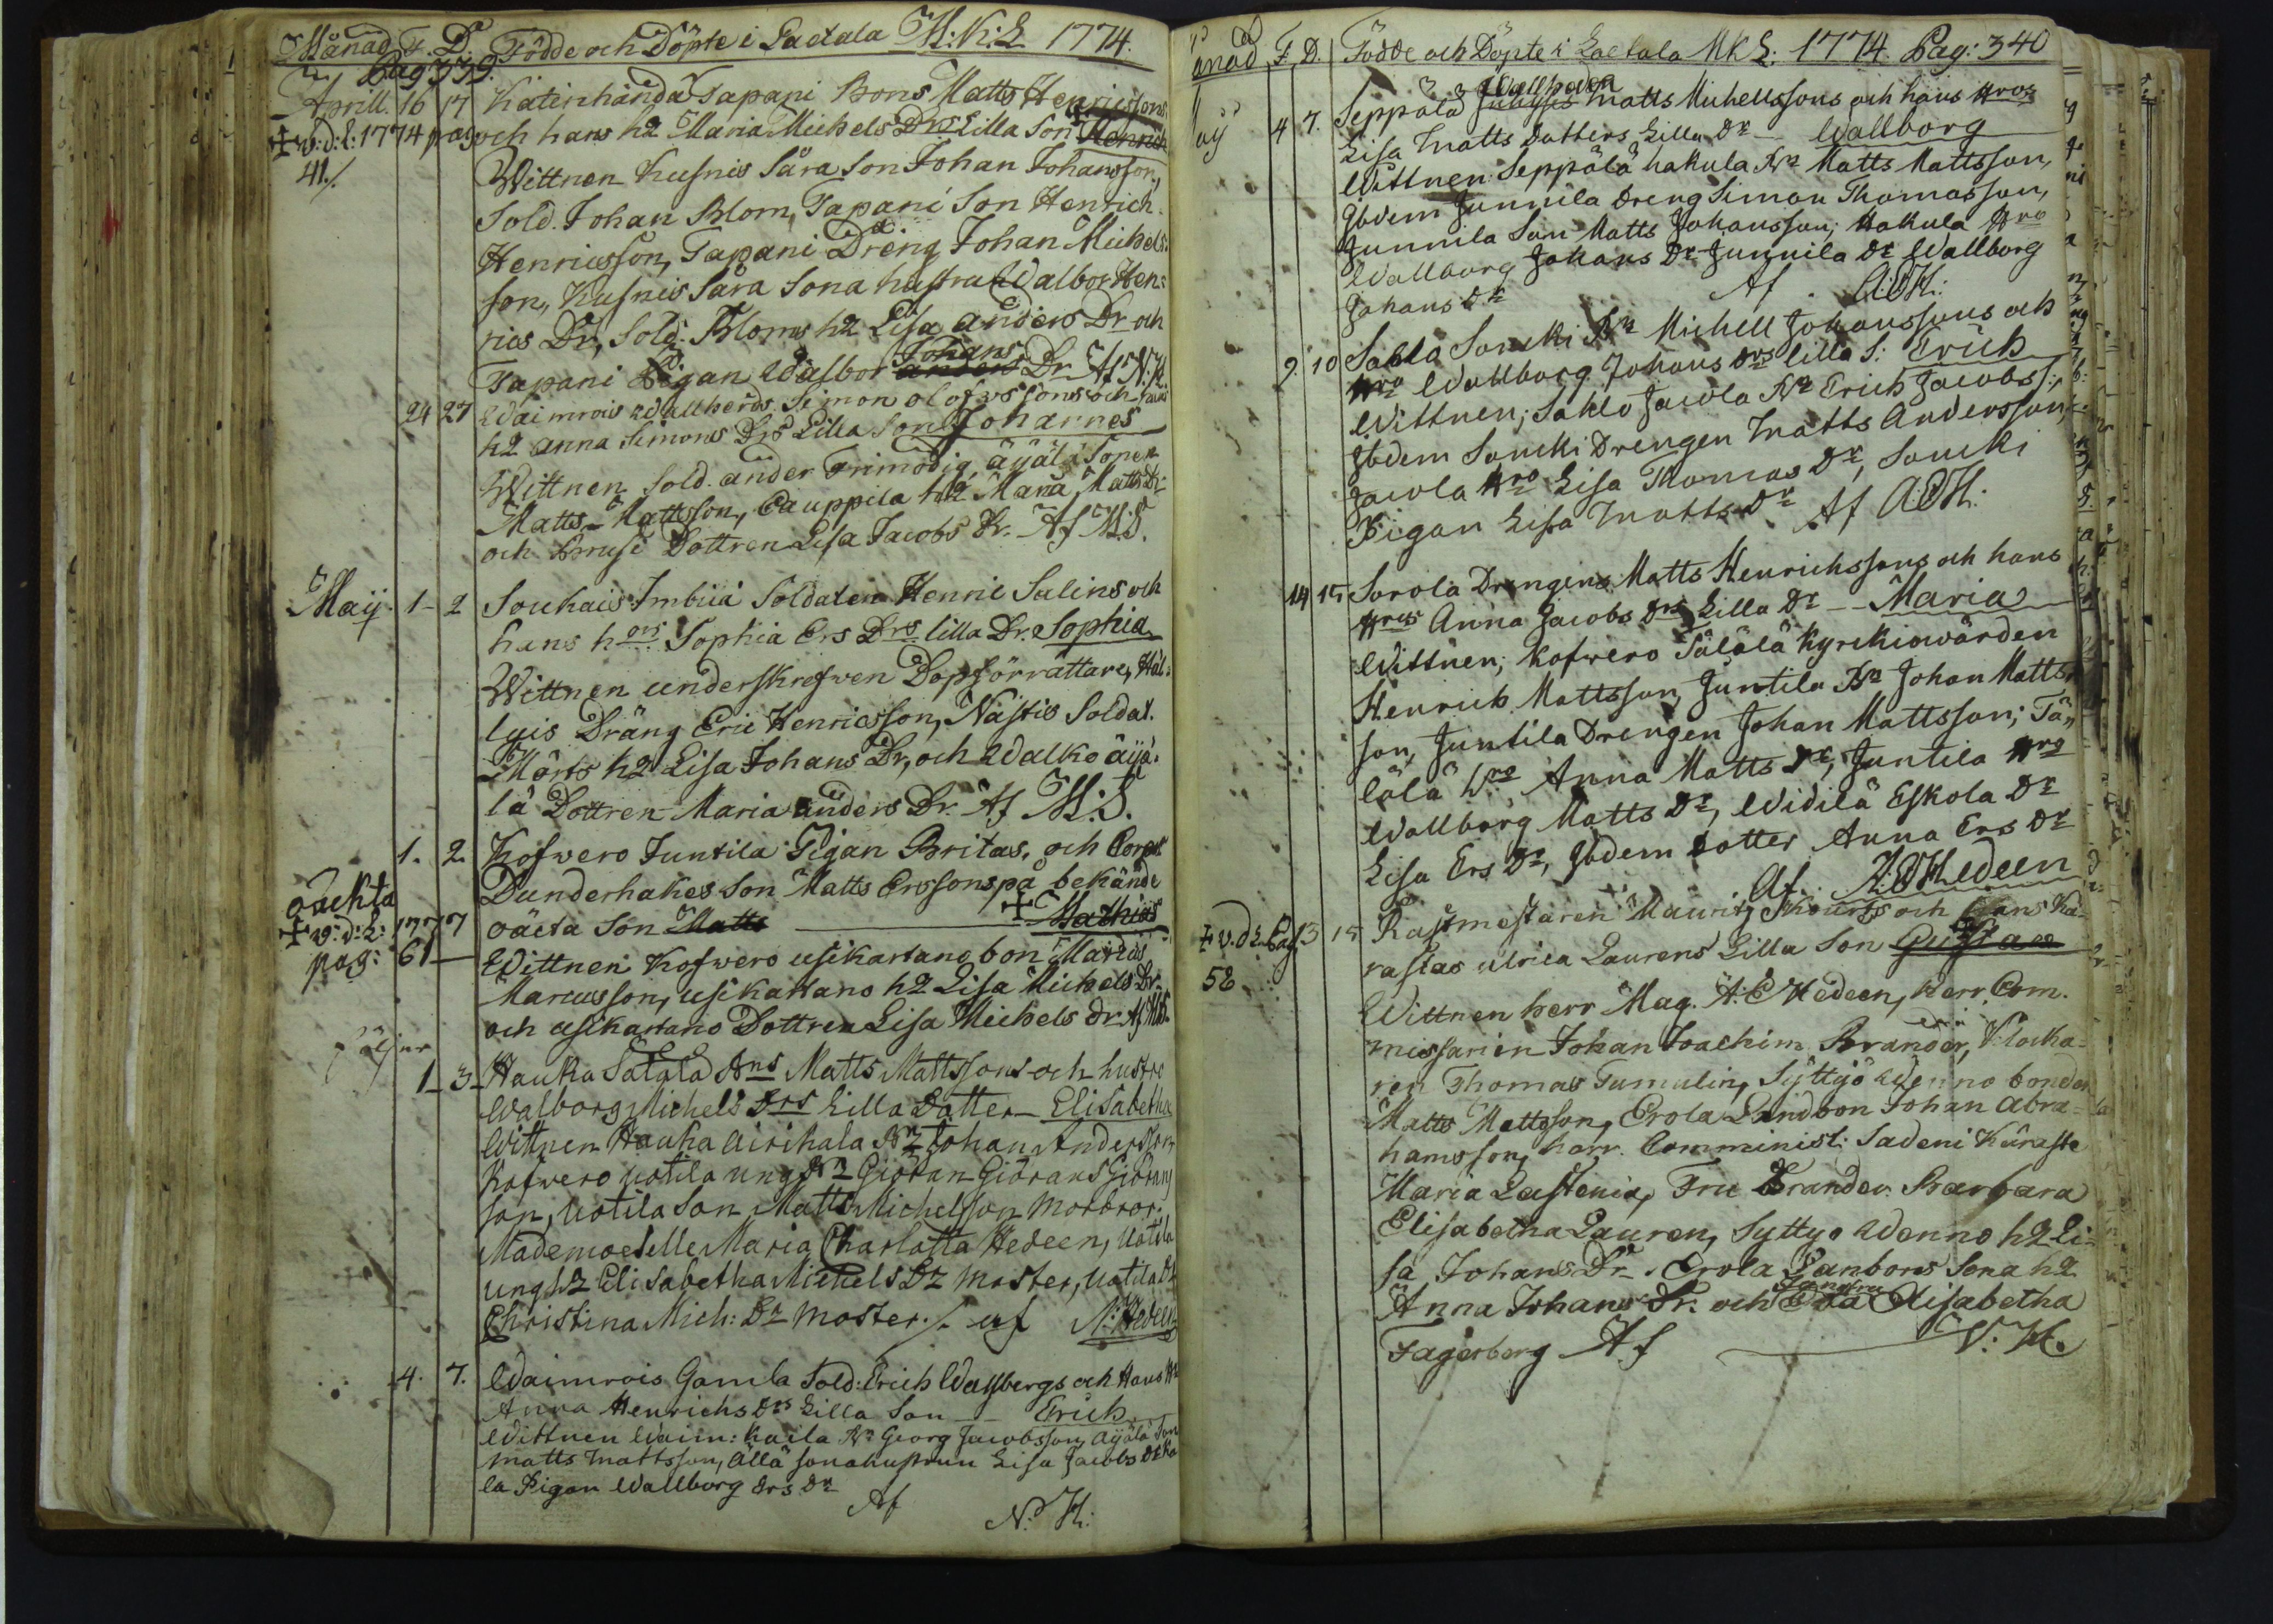 Månad F. D. Födde och Döpte i Lactala M:K:L 1774.
Pag 339.
Aprill. 16 17 Katinhända Tapani Bons Matts Henricssons
✝ v:d:l: 1774 pag och hans h2 Maria Michels Drs Lilla Son ✝ Henrich
41./. Wittnen Kusnis Sära Son Johan Johansson,
Sold. Johan Blom, Tapani Son Henrich
Henricsson, Tapani Dräng Johan Michels-
son, Kusnis Sära Sona hustru Walbor Hen-
rics Dr, Sold: Bloms h2 Lisa anders Dr och
Johans
Tapani Pigan Walbor anders Dr Af N.H.
24 27 Waimrois Wallherds Simon olofvssons och hans
h2 anna Simons Drs Lilla Son Johannes
Wittnen Sold. ander Frimodig, äijälä Sonen
Matts Mattsson, Cauppila h2 Maria Matts Dr
och Bruse Dottren Lisa Jacobs Dr. Af M.S.
Maij. 1- 2 Soukais Imbiia Soldaten Henric Salins och
hans h Sophia Ers Drs lilla Dr. Sophia
Wittnen underskrefwen Dopförrättare, Häl-
lyis Dräng Eric Henricsson, Nästis Soldat.
Mörts h2 Lisa Johans Dr, och Walko äijä-
lä Dottren Maria anders Dr. Af M:S.
1. 2. Kofwero Juntila Pigan Britas, och Corpr:
Dunderhakes Son Matts Erssons på bekände
oäckta
✝ v:d:L: 1777 oäcta Son Matts ✝ Mathias
pag: 61 Wittnen Kofwero usikartano bon Matias
Marcusson, usikartano h2 Lisa Michels Dr.
och usikartano Dottren Lisa Michels Dr Af MS.
1 3 Hauka Satala Ans Matts Mattssons och hustrs
Walborg Michels Drs Lilla Dotter Elisabetha
Wittnen Hauka Airikala Bn Johan Andersson,
Kofwero uotila ung Bn Giöran Giörans Giörans
son, Uotila Son Matts Michelsson Morbror.
Mademoeselle Maria Charlotta Hedeen, Uotila
ung h2 Elisabetha Michels Dr Moster, Uotila Dr
Christina Mich: Dr Moster./. af N: Hedeen
4. 7. Waimrois Gamla Sold: Erich Wallbergs och Hans H
Anna Henrichs Drs Lilla Son Erich
Wittnen Waim: Kaila Bn Georg Jacobsson, Äyälä Son
Matts Mattsson, Ällä sonahustrun Lisa Jacobs Dr Ka
la Pigan Wallborg Ers Dr
Af N: H:
anad F. D. Födde och Döpte i Laetala MKL: 1774 Pag: 340
Wallheden
aij 4 7. Seppälä Matts Michellssons och hans Hros
Lisa Matts Datters Lilla Dr Wallborg
Wittnen: Seppälä hakula Bn Matts Mattsson,
Ibdem Junnila Dreng Simon Thomasson,
Junnila Son Matts Johansson; Hakula Hro
Wallborg Johans Dr Junnila Dr Wallborg
Johans Dr Af A:EH:
9. 10 Sahla Soncki Bn Michell Johanssons och
Hro Wallborg Johans Drs lilla S: Erich
Wittnen; Sahlo Jacola Bn Erich Jacobss:,
Ibdem Soncki Drengen Matts Andersson,
Jacola Hro Lisa Thomas Dr, Soncki
Pigan Lisa Matts Dr Af A:EH:
14 15 Sorola Drengens Matts Henrichssons och hans
Hros Anna Jacobs Drs Lilla Dr Maria
Wittnen; Kofwero Tälälä Kyrckiowärden
Henrich Mattsson, Juntila Bn Johan Matts-
son, Juntila Drengen Johan Mattsson; Tä-
lälä Hro Anna Matts Dr, Juntila Hro
Wallborg Matts Dr, Widilä Eskola Dr
Lisa Ers Dr, Ibdem Dotter Anna Ers Dr
Af A:EHedeen
✝ v.d L. Pag 13 15 Rastmestaren Mauritz och Hans Kä-
58 rastas ulrica Laurens Lilla Son Gustav
Wittnen herr Mag. A:E Hedeen, Herr Com-
missarien Johan Joachim Brander, Klocka-
ren Thomas Tamulin, Syttyö Wenno bonden
Matts Mattsson, Erola Landbon Johan Abra-
hamsson, herr. Comminist: Sadeni Käraste
Maria Lastenia, Fru Brander Barbara
Elisabetha Lauren, Syttyo Wenno h2 Li-
sa Johans Dr. Erola Lanbons Sona h2
Jungfru
Anna Johans Dr. och Elisabetha
Fagerberg Af N: H.